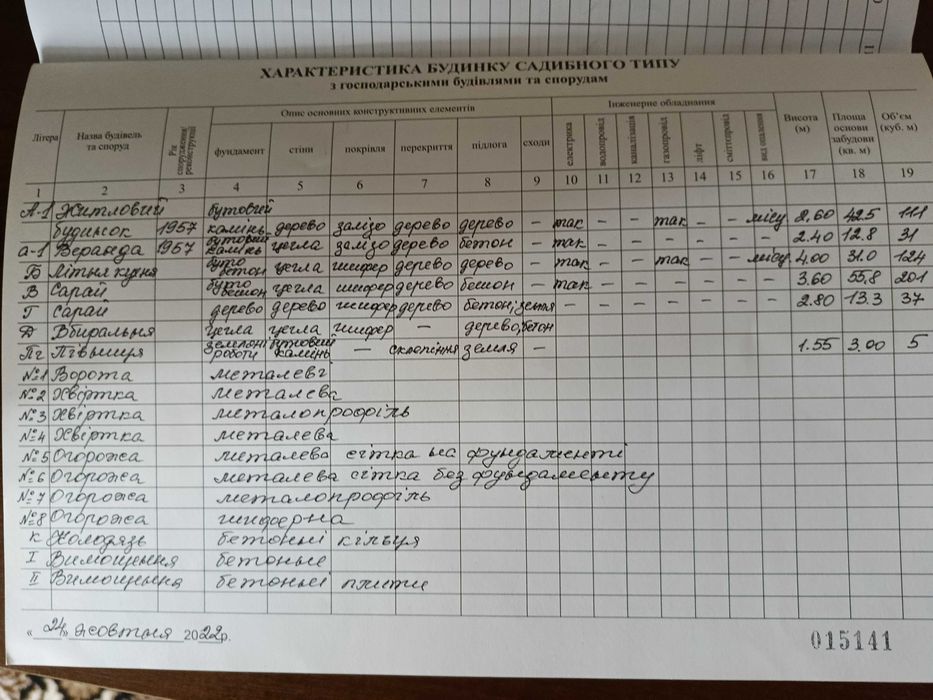 ХАРАКТЕРИСТИКА БУДИНКУ САДИБНОГО ТИПУ
з господарськими будівлями та спорудам
Літера Назва будівель та споруд Рік спорудження/реконструкції Опис основних конструктивних елементів Інженерне обладнання Висота (м) Площа основи забудови (кв. м) Об'єм (куб. м)
фундамент стіни покрівля перекриття підлога сходи електрика водопровід каналізація газопровід ліфт сміттєпровід вид опалення
1 2 3 4 5 6 7 8 9 10 11 12 13 14 15 16 17 18 19
А-1 Житловий бутовий
будинок 1957 камінь дерево залізо дерево дерево – так – – так – – місц. 2.60 42.5 111
а-1 Веранда 1957 бутовий камінь цегла залізо дерево бетон – так – – – – – – 2.40 12.8 31
Б Літня кухня буто бетон цегла шифер дерево дерево – так – – так – – місц. 4.00 31.0 124
В Сарай буто бетон цегла шифер дерево бетон – так – – – – – – 3.60 55,8 201
Г Сарай дерево дерево шифер дерево бетон; земля – – – – – – – 2.80 13.3 37
Д Вбиральня цегла цегла шифер – дерево, бетон
Пг Півниця земляні роботи бутовий камінь – склепіння земля – 1.55 3.00 5
№1 Ворота металеві
№2 Хвіртка металева
№3 Хвіртка металопрофіль
№4 Хвіртка металева
№5 Огорожа металева сітка на фундаменті
№6 Огорожа металева сітка без фундаменту
№7 Огорожа металопрофіль
№8 Огорожа шиферна
К Колодязь бетонні кільця
I Вимощення бетонне
II Вимощення бетонні плити
« 24 » жовтня 2022р.
015141